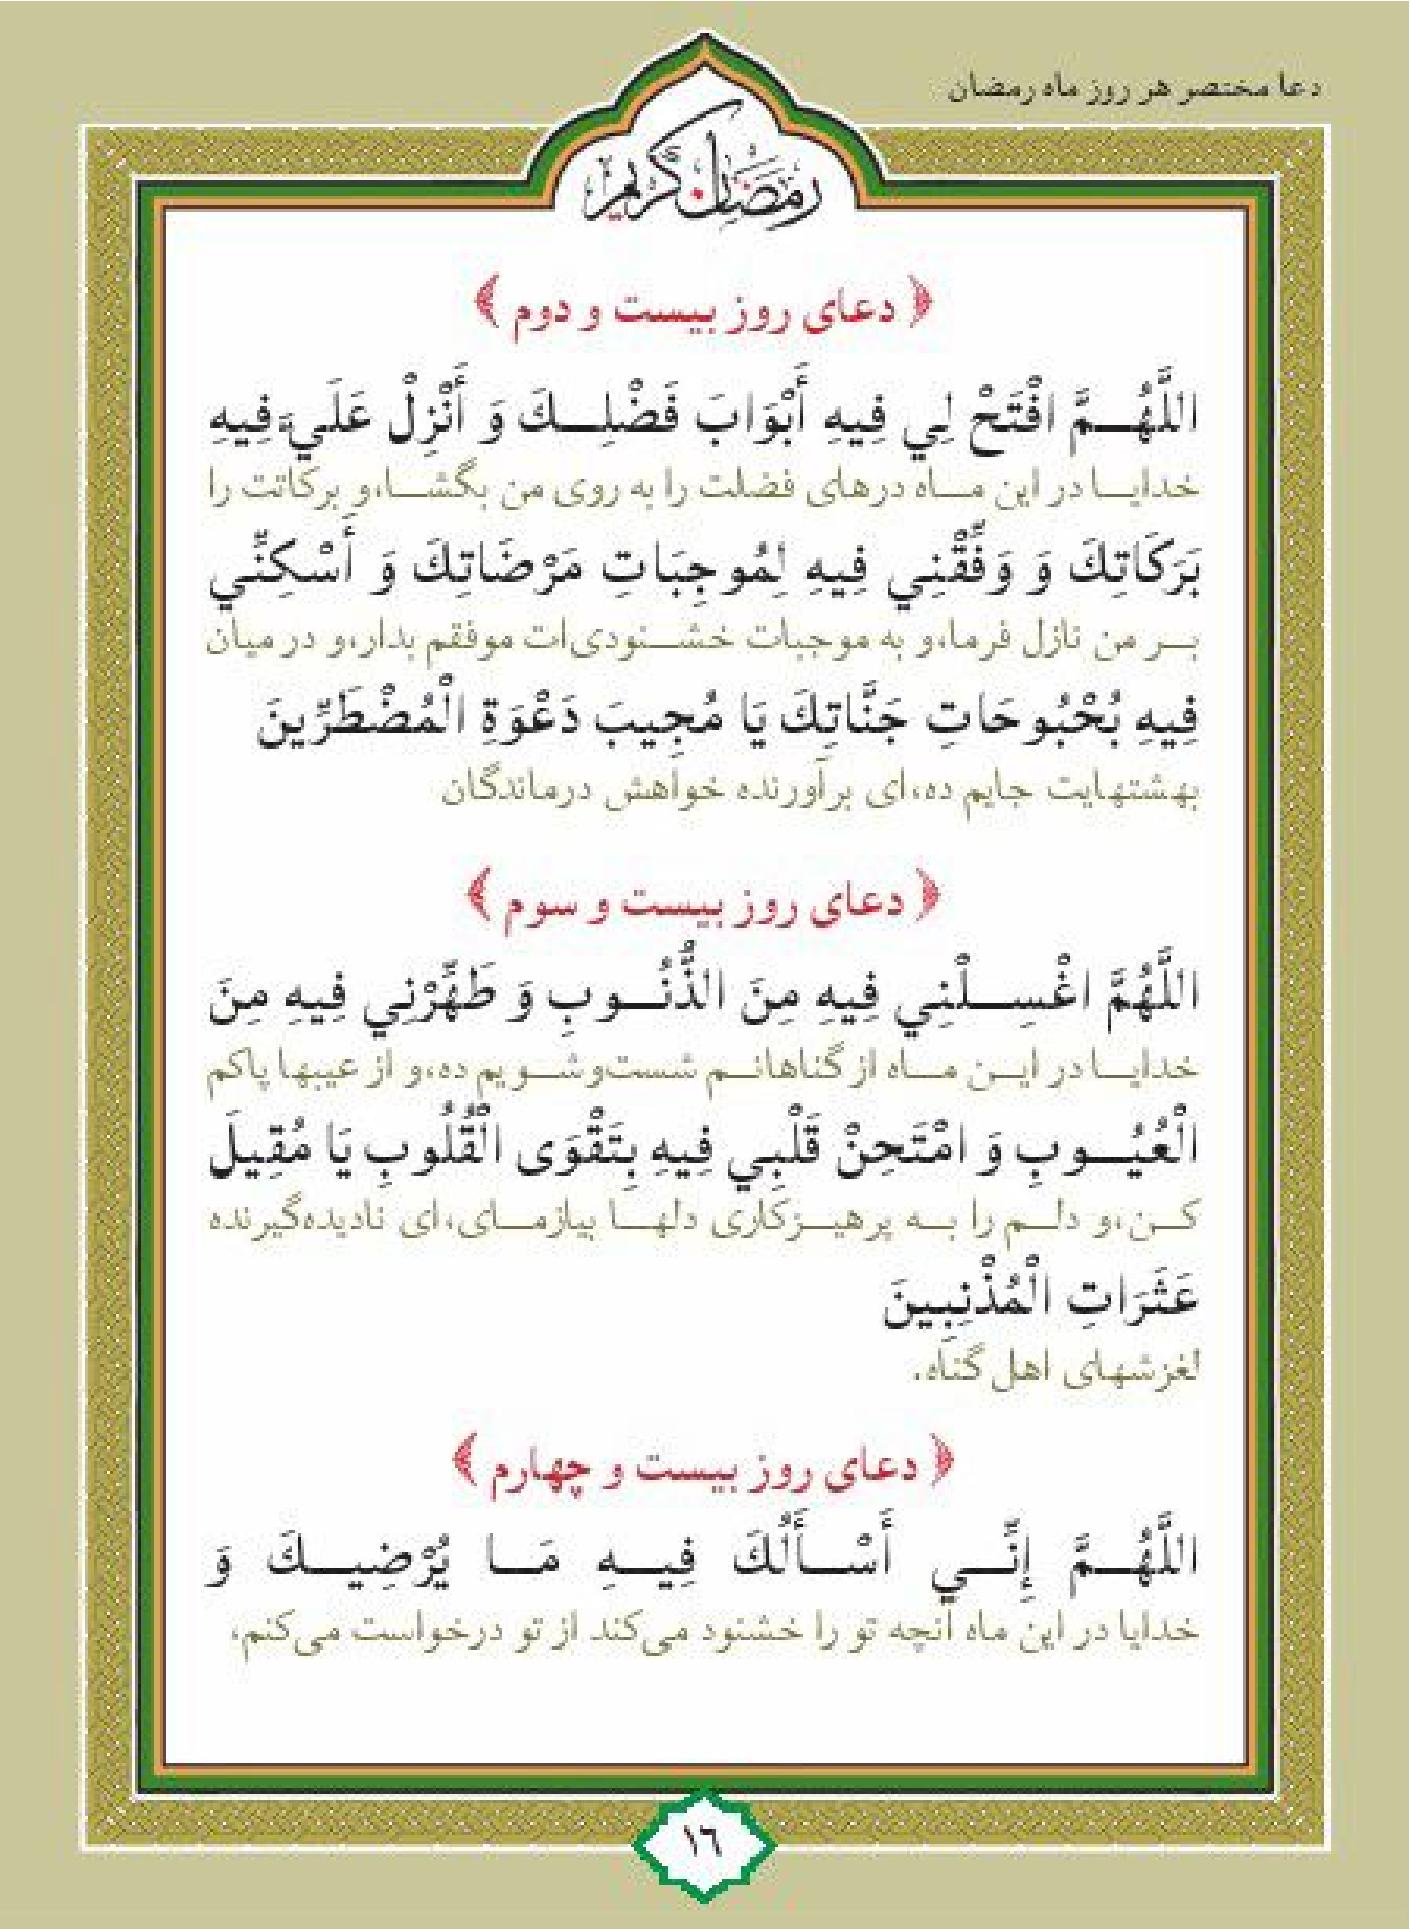 دعا مختصر هر روز ماه رمضان
رمضان كريم
﴿ دعای روز بیست و دوم ﴾
اللَّهُمَّ افْتَحْ لِي فِيهِ أَبْوَابَ فَضْلِكَ وَ أَنْزِلْ عَلَيَّ فِيهِ
خدایا در این ماه درهای فضلت را به روی من بگشا،و برکاتت را
بَرَكَاتِكَ وَ وَفِّقْنِي فِيهِ لِمُوجِبَاتِ مَرْضَاتِكَ وَ أَسْكِنِّي
بر من نازل فرما،و به موجبات خشنودی‌ات موفقم بدار،و در میان
فِيهِ بُحْبُوحَاتِ جَنَّاتِكَ يَا مُجِيبَ دَعْوَةِ الْمُضْطَرِّينَ
بهشتهایت جایم ده،ای برآورنده خواهش درماندگان
﴿ دعای روز بیست و سوم ﴾
اللَّهُمَّ اغْسِلْنِي فِيهِ مِنَ الذُّنُوبِ وَ طَهِّرْنِي فِيهِ مِنَ
خدایا در این ماه از گناهانم شست‌وشویم ده،و از عیبها پاکم
الْعُيُوبِ وَ امْتَحِنْ قَلْبِي فِيهِ بِتَقْوَى الْقُلُوبِ يَا مُقِيلَ
کن،و دلم را به پرهیزکاری دلها بیازمای،ای نادیده‌گیرنده
عَثَرَاتِ الْمُذْنِبِينَ
لغزشهای اهل گناه.
﴿ دعای روز بیست و چهارم ﴾
اللَّهُمَّ إِنِّي أَسْأَلُكَ فِيهِ مَا يُرْضِيكَ وَ
خدایا در این ماه آنچه تو را خشنود می‌کند از تو درخواست می‌کنم،
١٦